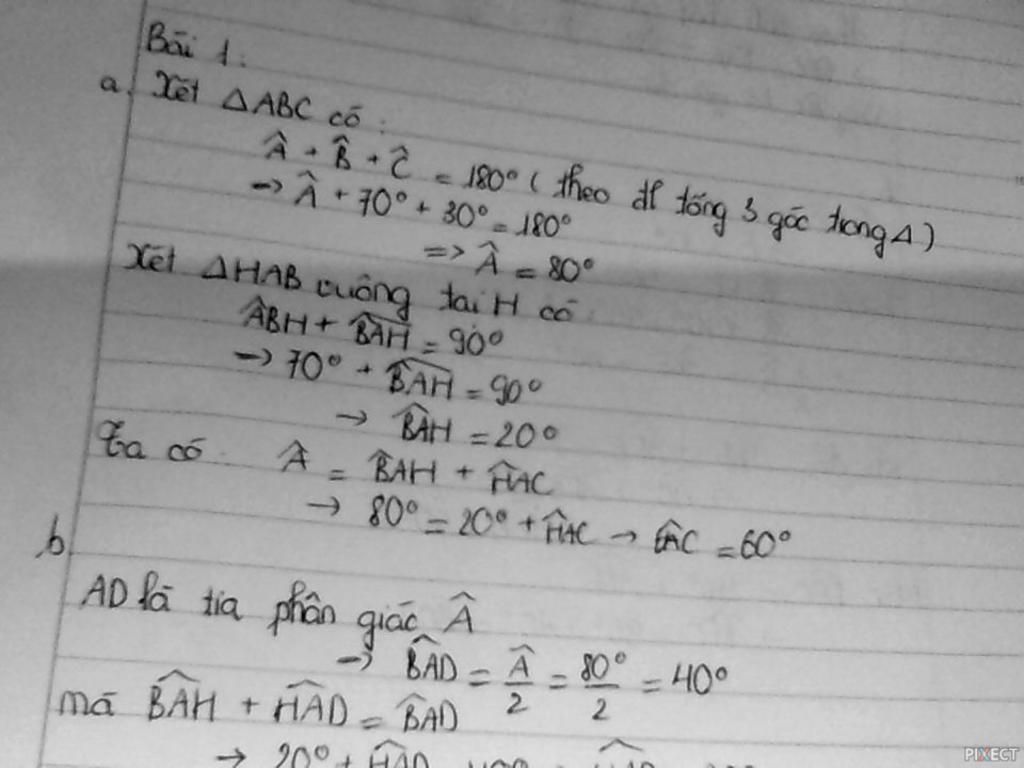 Bài 1:
a. Xét △ABC có:
Â + B̂ + Ĉ = 180° ( theo đl tổng 3 góc trong △ )
→ Â + 70° + 30° = 180°
=> Â = 80°
Xét △HAB vuông tại H có
ÂBH + B̂AH = 90°
→ 70° + B̂AH = 90°
→ B̂AH = 20°
Ta có Â = B̂AH + ĤAC
→ 80° = 20° + ĤAC → ĤAC = 60°
b.
AD là tia phân giác Â
→ B̂AD = Â/2 = 80°/2 = 40°
mà B̂AH + ĤAD = B̂AD
→ 20° + ĤAD
PIXECT